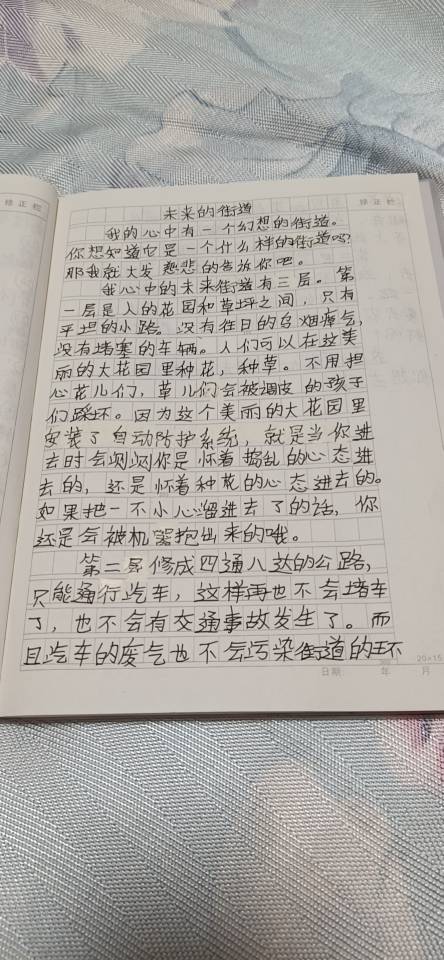 修正栏
修正栏
未来的街道
我的心中有一个幻想的街道。
你想知道它是一个什么样的街道吗?
那我就大发慈悲的告诉你吧。
我心中的未来街道有三层。第
一层是人的花园和草坪之间,只有
平坦的小路,没有往日的乌烟瘴气,
没有堵塞的车辆。人们可以在这美
丽的大花园里种花,种草。不用担
心花儿们,草儿们会被调皮的孩子
们踩坏。因为这个美丽的大花园里
安装了自动防护系统,就是当你进
去时会测测你是怀着捣乱的心态进
去的,还是怀着种花的心态进去的。
如果把一不小心溜进去了的话,你
还是会被机器抱出来的哦。
第二层修成四通八达的公路,
只能通行汽车,这样再也不会堵车
了,也不会有交通事故发生了。而
且汽车的废气也不会污染街道的环
20×15
日期: 年 月